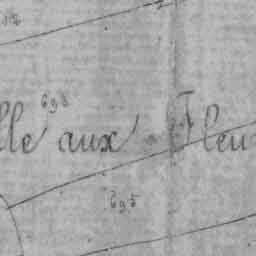 698
lle aux Fleu
695